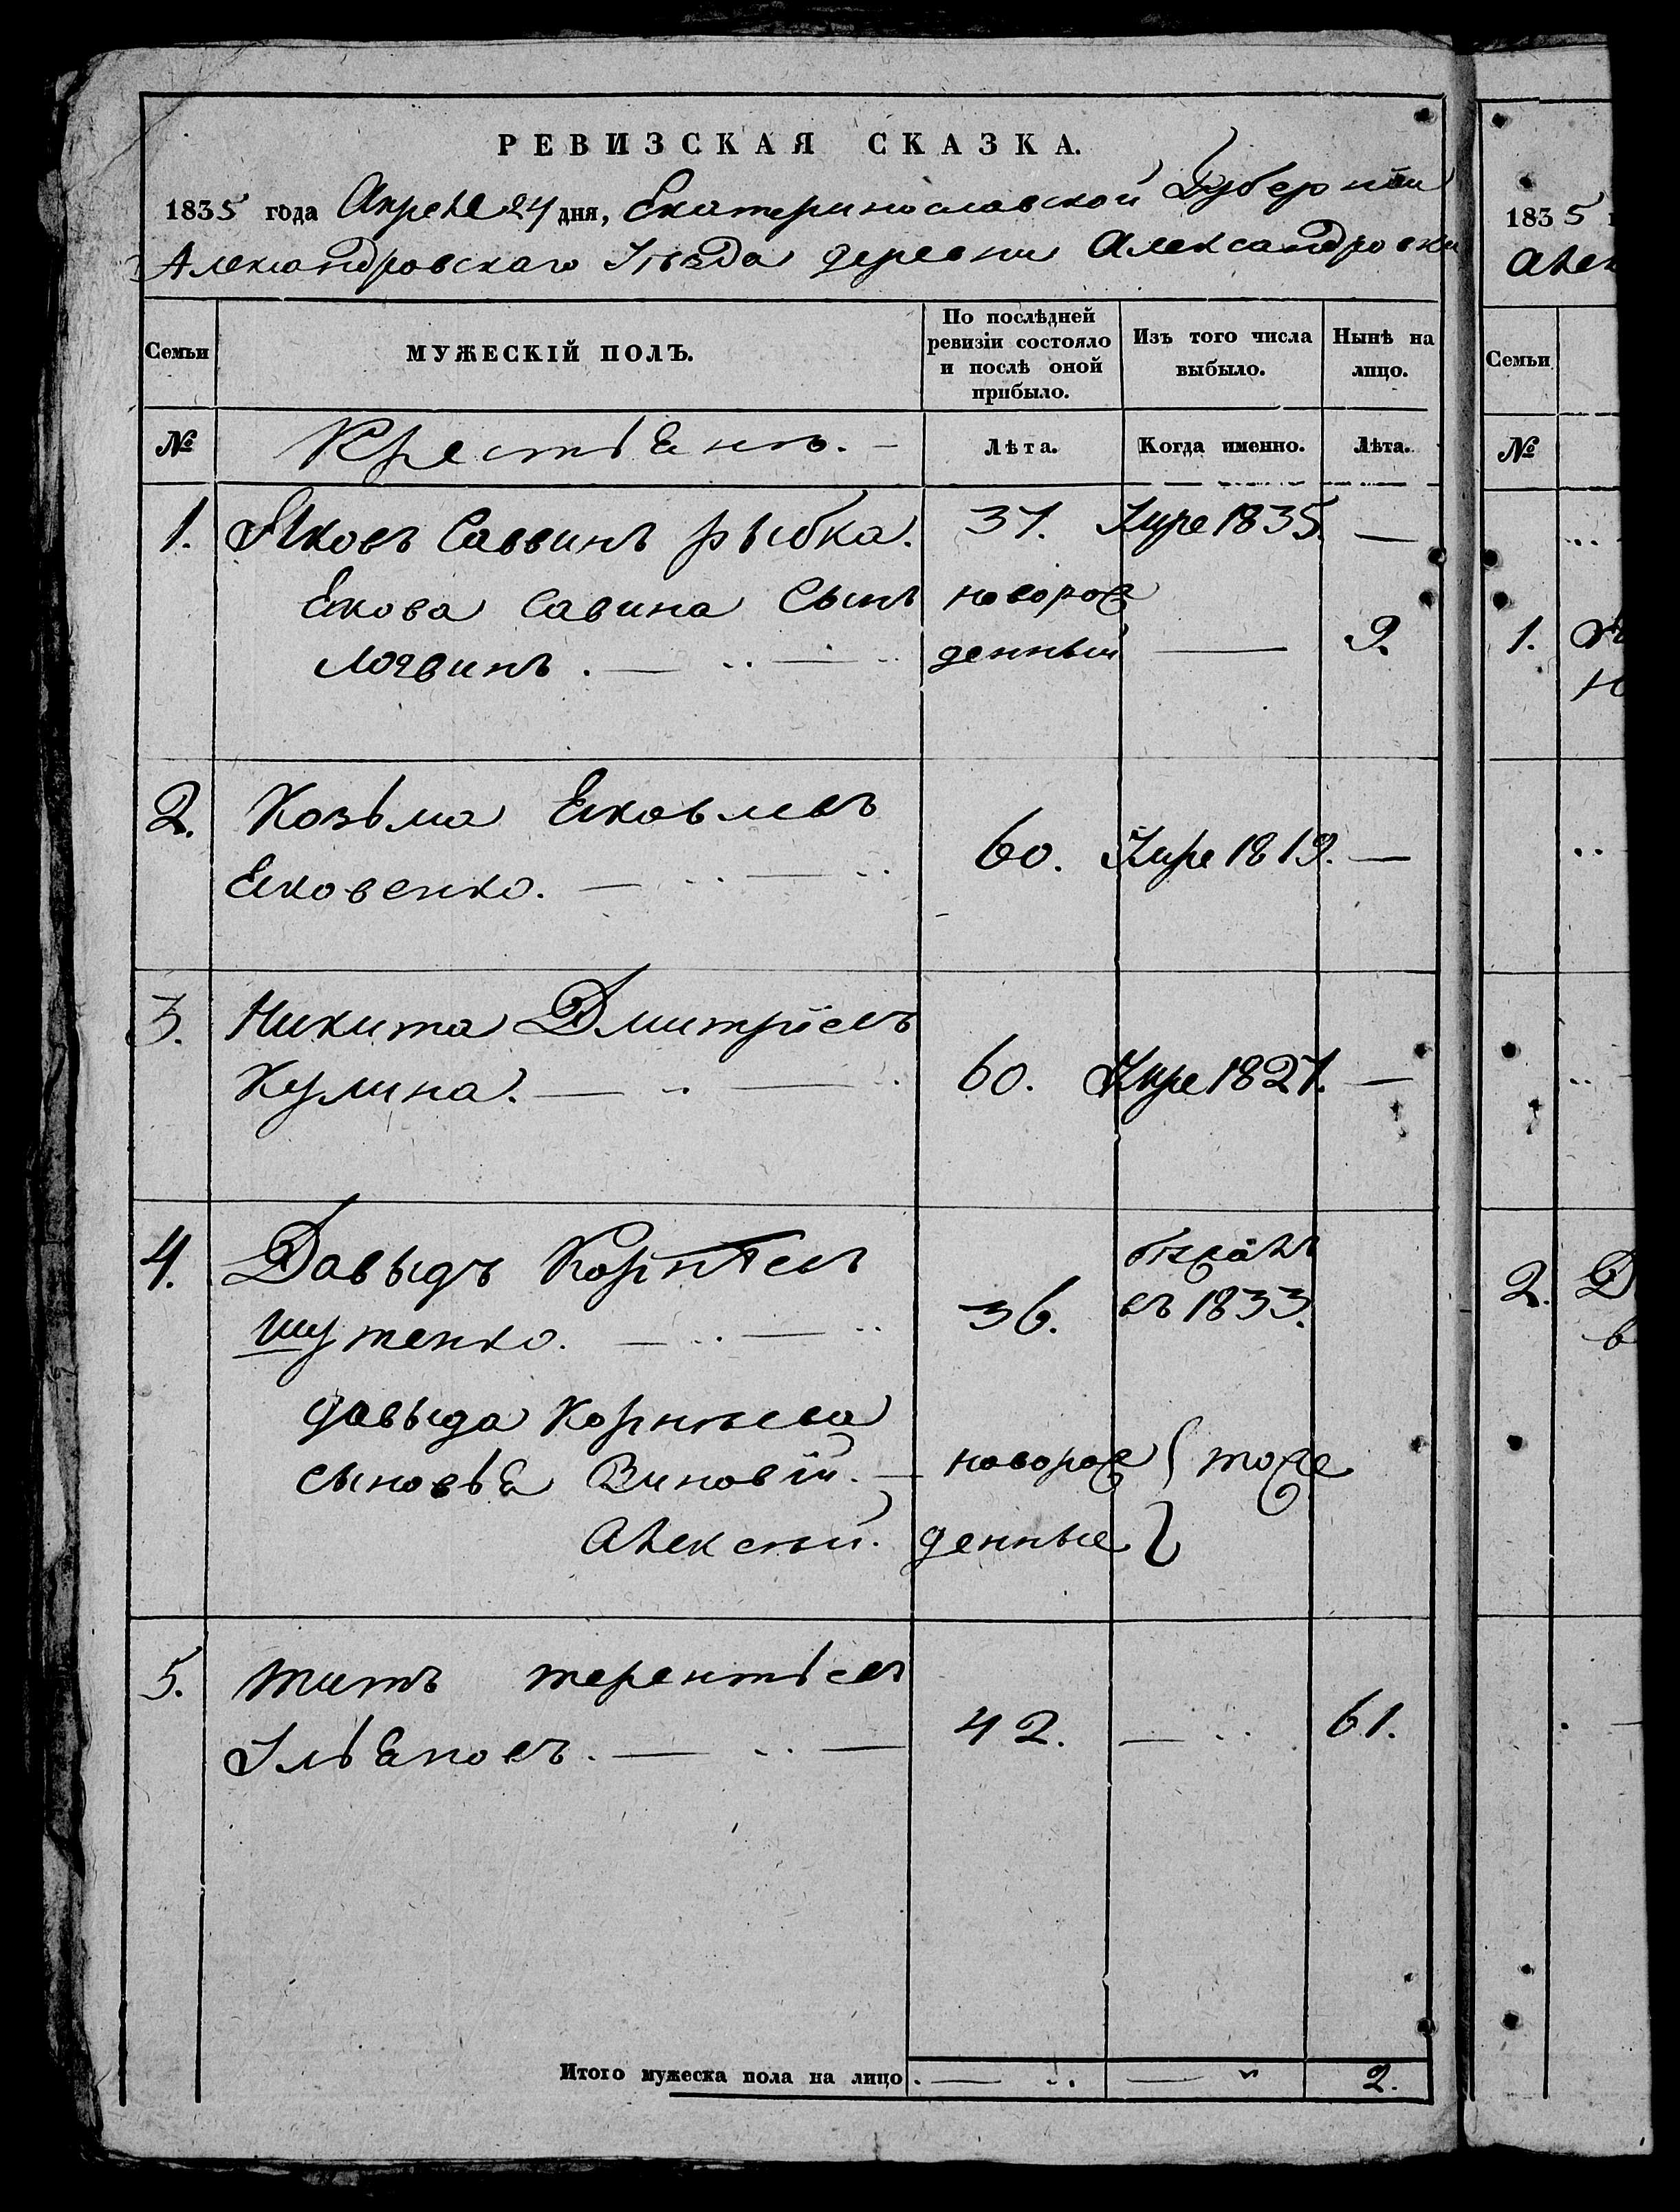 РЕВИЗСКАЯ СКАЗКА.
1835 года Апреля 24 дня, Екатеринославской Губерніи
Александровскаго Уѣзда деревни Александровки
Семьи
МУЖЕСКІЙ ПОЛЪ.
По послѣдней ревизіи состояло и послѣ оной прибыло.
Изъ того числа выбыло.
Нынѣ на лицо.
№ Крестьянъ. Лѣта. Когда именно. Лѣта.
1. Яковъ Саввинъ рыбка. 37. Умре 1835. —
Якова Савина Сынъ новорож
Логвинъ. денный — 9.
2. Козьма Яковлевъ
Яковенко. 60. Умре 1819. —
3. Никита Дмитріевъ
Кулина. 60. Умре 1827. —
4. Давыдъ Корнѣевъ бежалъ
шутенко. 36. въ 1833.
давыда Корнѣева
сыновья Зиновій. — новорож тоже
Алексѣй. денные
5. титъ терентьевъ
Ульяновъ. 42. — 61.
Итого мужеска пола на лицо 2.
1835
Алек
Семьи
№
1.
2. Д
в